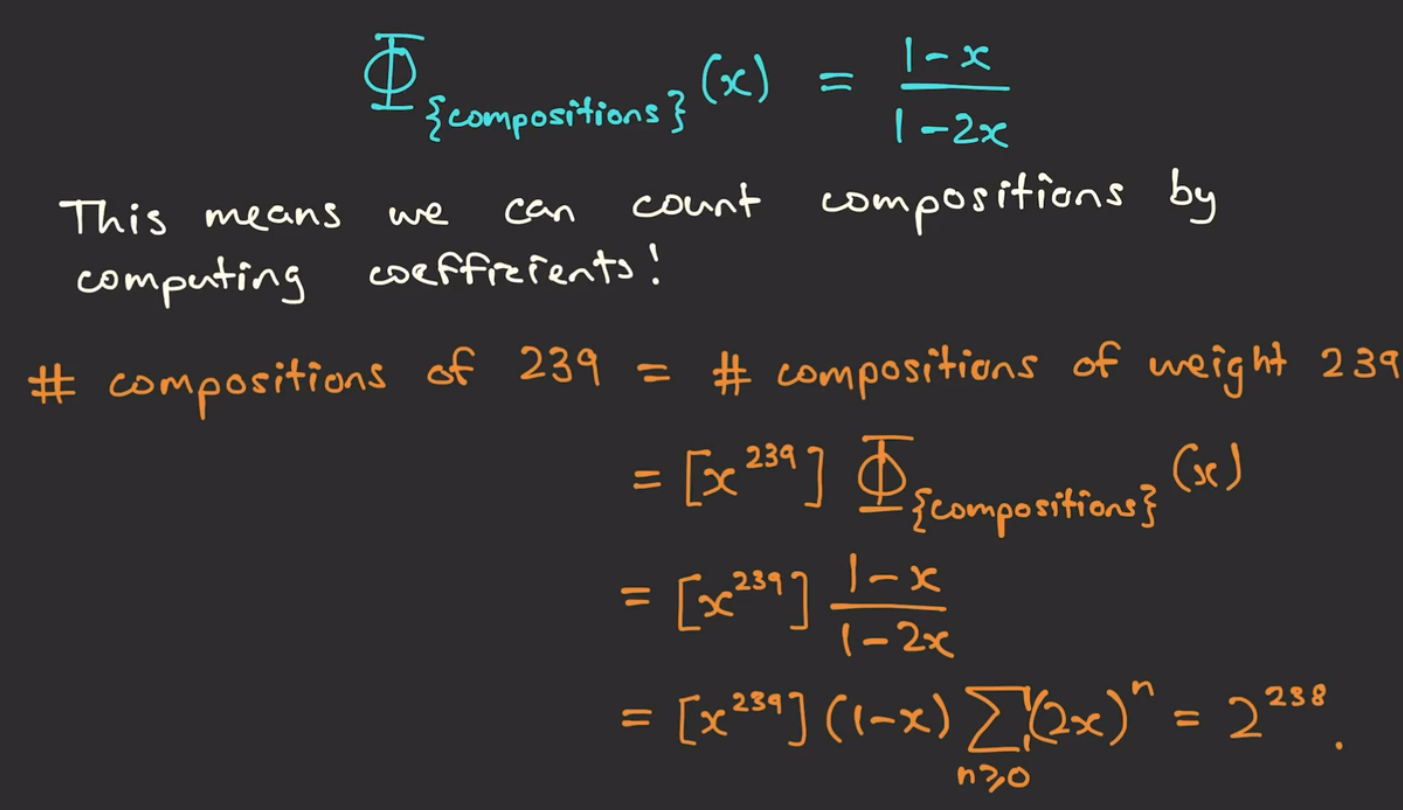 Φ_{compositions}(x) = (1-x)/(1-2x)
This means we can count compositions by
computing coefficients!
# compositions of 239 = # compositions of weight 239
= [x^239] Φ_{compositions}(x)
= [x^239] (1-x)/(1-2x)
= [x^239] (1-x) ∑_{n≥0} (2x)^n = 2^238.